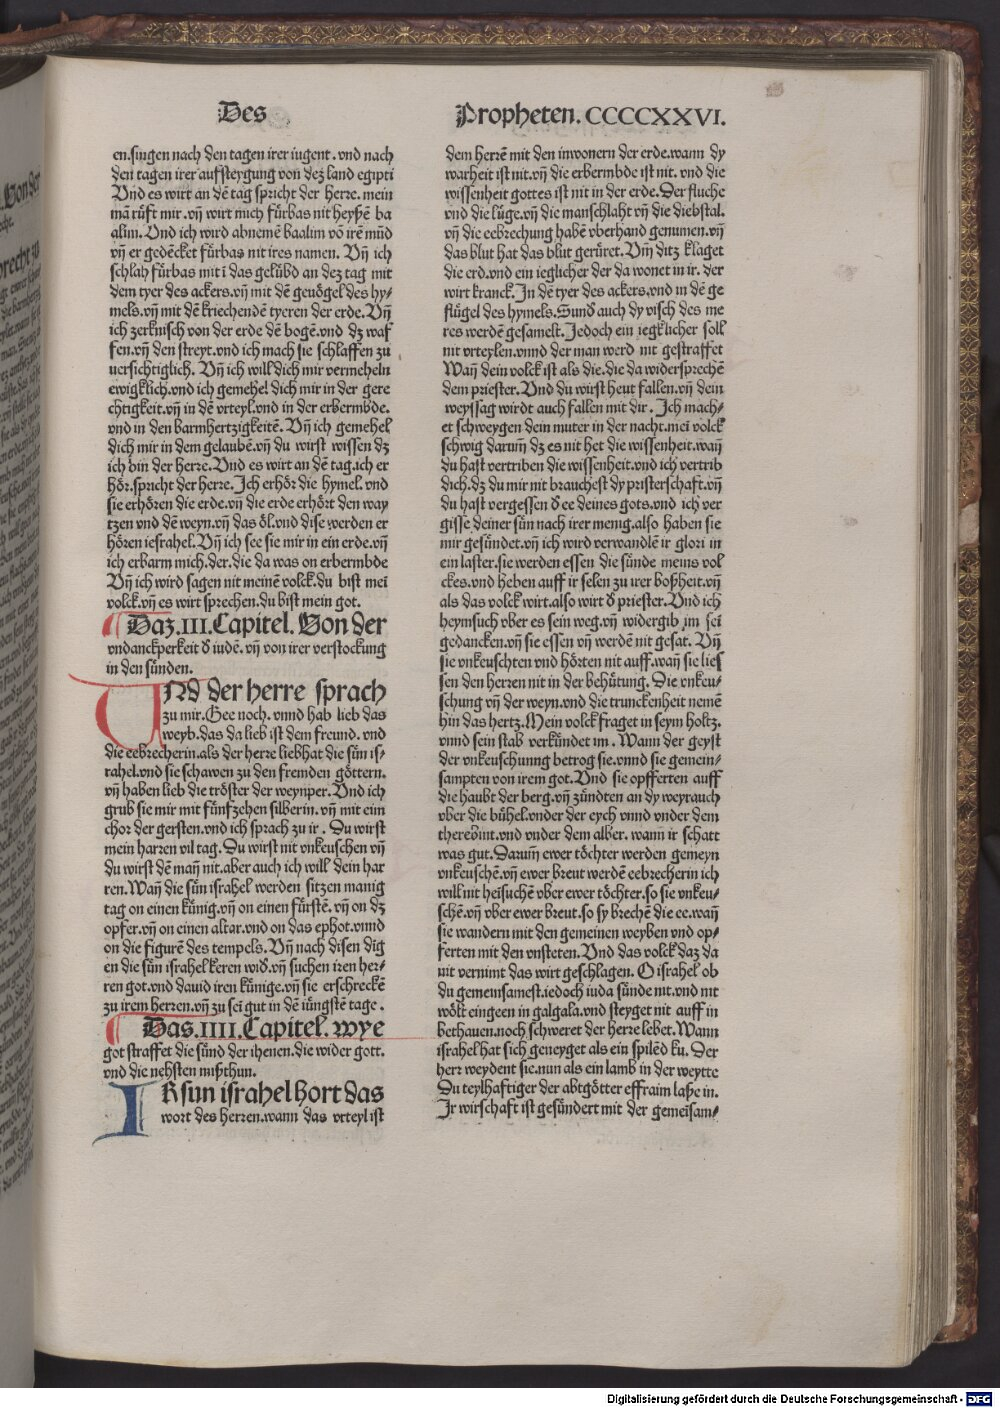 Des
Propheten. CCCCXXVI.
en.singen nach den tagen irer iugent. vnd nach
den tagen irer aufsteygung von dez land egipti
Vnd es wirt an dē tag spricht der herre. mein
mā růfft mir. vñ wirt mich fürbas nit heyßē ba
alim. Vnd ich wird abnemē baalim vō irē mūd
vñ er gedēcket fürbas nit ires namen. Vñ ich
schlah fürbas mit ī das gelübd an dez tag mit
dem tyer des ackers. vñ mit dē geuögel des hy-
mels. vñ mit dē kriechendē tyeren der erde. Vñ
ich zerknisch von der erde dē bogē. vnd dz waf
fen. vñ den streyt. vnd ich mach sie schlaffen zu
uersichtiglich. Vñ ich will dich mir vermeheln
ewigklich. vnd ich gemehel dich mir in der gere
chtigkeit. vñ in dē vrteyl. vnd in der erbermbde.
vnd in den barmhertzigkeitē. Vñ ich gemehel
dich mir in dem gelaubē. vñ du wirst wissen dz
ich bin der herre. Vnd es wirt an dē tag. ich er
hör. spricht der herre. Ich erhör die hymel. vnd
sie erhören die erde. vñ die erde erhört den way
tzen vnd dē weyn. vñ das öl. vnd dise werden er
hören iesrahel. Vñ ich see sie mir in ein erde. vñ
ich erbarm mich. der. die da was on erbermbde
Vñ ich wird sagen nit meinē volck. du bist mei
volck. vñ es wirt sprechen. du bist mein got.
Daz. III. Capitel. Von der
vndanckperkeit d̄ iudē. vñ von irer verstockung
in den sünden.
VNd der herre sprach
zu mir. Gee noch. vnnd hab lieb das
weyb. das da lieb ist dem freund. vnd
die eebrecherin. als der herre liebhat die sün is-
rahel. vnd sie schawen zu den fremden göttern.
vñ haben lieb die tröster der weynper. Vnd ich
grub sie mir mit fünfzehen silberin. vñ mit eim
chor der gersten. vnd ich sprach zu ir. Du wirst
mein harren vil tag. Du wirst nit vnkeuschen vñ
du wirst dē mañ nit. aber auch ich will dein har
ren. Wañ die sün israhel werden sitzen manig
tag on einen künig. vñ on einen fürstē. vñ on dz
opfer. vñ on einen altar. vnd on das ephot. vnnd
on die figurē des tempels. Vñ nach disen dig
en die sün israhel keren wid̄. vñ suchen iren her-
ren got. vnd dauid iren künige. vñ sie erschreckē
zu irem herren. vñ zu sei gut in dē iüngstē tage.
Das. IIII. Capitel. wye
got straffet die sünd der ihenen. die wider gott.
vnd die nehsten mißthun.
IR sun israhel hort das
wort des herren. wann das vrteyl ist
dem herrē mit den inwonern der erde. wann dy
warheit ist nit. vñ die erbermbde ist nit. vnd die
wissenheit gottes ist nit in der erde. Der fluche
vnd die lüge. vñ die manschlaht vñ die diebstal.
vñ die eebrechung habē vberhand genumen. vñ
das blut hat das blut gerüret. Vm̄ ditz klaget
die erd. vnd ein ieglicher der da wonet in ir. der
wirt kranck. In dē tyer des ackers. vnd in dē ge
flügel des hymels. Sund auch dy visch des me
res werdē gesamelt. Jedoch ein iegklicher soll
nit vrteylen. vnnd der man werd nit gestraffet
Wañ dein volck ist als die. die da widersprechē
dem priester. Vnd du wirst heut fallen. vñ dein
weyssag wirdt auch fallen mit dir. Ich mach-
et schweygen dein muter in der nacht. mei volck
schwig darum̄ dz es nit het die wissenheit. wañ
du hast vertriben die wissenheit. vnd ich vertrib
dich. dz du mir nit brauchest dy pristerschaft. vñ
du hast vergessen d̄ ee deines gots. vnd ich ver
gisse deiner sün nach irer menig. also haben sie
mir gesündet. vñ ich wird verwandlē ir glori in
ein laster. sie werden essen die sünde meins vol
ckes. vnd heben auff ir selen zu irer boßheit. vñ
als das volck wirt. also wirt d̄ priester. Vnd ich
heymsuch vber es sein weg. vñ widergib im sei
gedancken. vñ sie essen vñ werdē nit gesat. Vñ
sie vnkeuschten vnd hörten nit auff. wañ sie lies
sen den herren nit in der behütung. Die vnkeu-
schung vñ der weyn. vnd die trunckenheit nemē
hin das hertz. Mein volck fraget in seym holtz.
vnnd sein stab verkündet im. Wann der geyst
der vnkeuschunng betrog sie. vnnd sie gemein-
sampten von irem got. Vnd sie opfferten auff
die haubt der berg. vñ zündten an dy weyrauch
vber die bühel. vnder der eych vnnd vnder dem
therebint. vnd vnder dem alber. wann ir schatt
was gut. Darum̄ ewer töchter werden gemeyn
vnkeuschē. vñ ewer breut werdē eebrecherin ich
will nit heīsuchē vber ewer töchter. so sie vnkeu-
schē. vñ vber ewer breut. so sy brechē die ee. wañ
sie wandern mit den gemeinen weyben vnd op-
ferten mit den vnsteten. Vnd das volck daz da
nit vernimt das wirt geschlagen. O israhel ob
du gemeinsamest. iedoch iuda sünde nit. vnd nit
wölt eingeen in galgala. vnd steyget nit auff in
bethauen. noch schweret der herre lebet. Wann
israhel hat sich geneyget als ein spilēd ku. Der
herr weydent sie. nun als ein lamb in der weytte
Du teylhaftiger der abtgötter effraim laße in.
Ir wirschaft ist gesündert mit der gemeīsam-
Digitalisierung gefördert durch die Deutsche Forschungsgemeinschaft - DFG